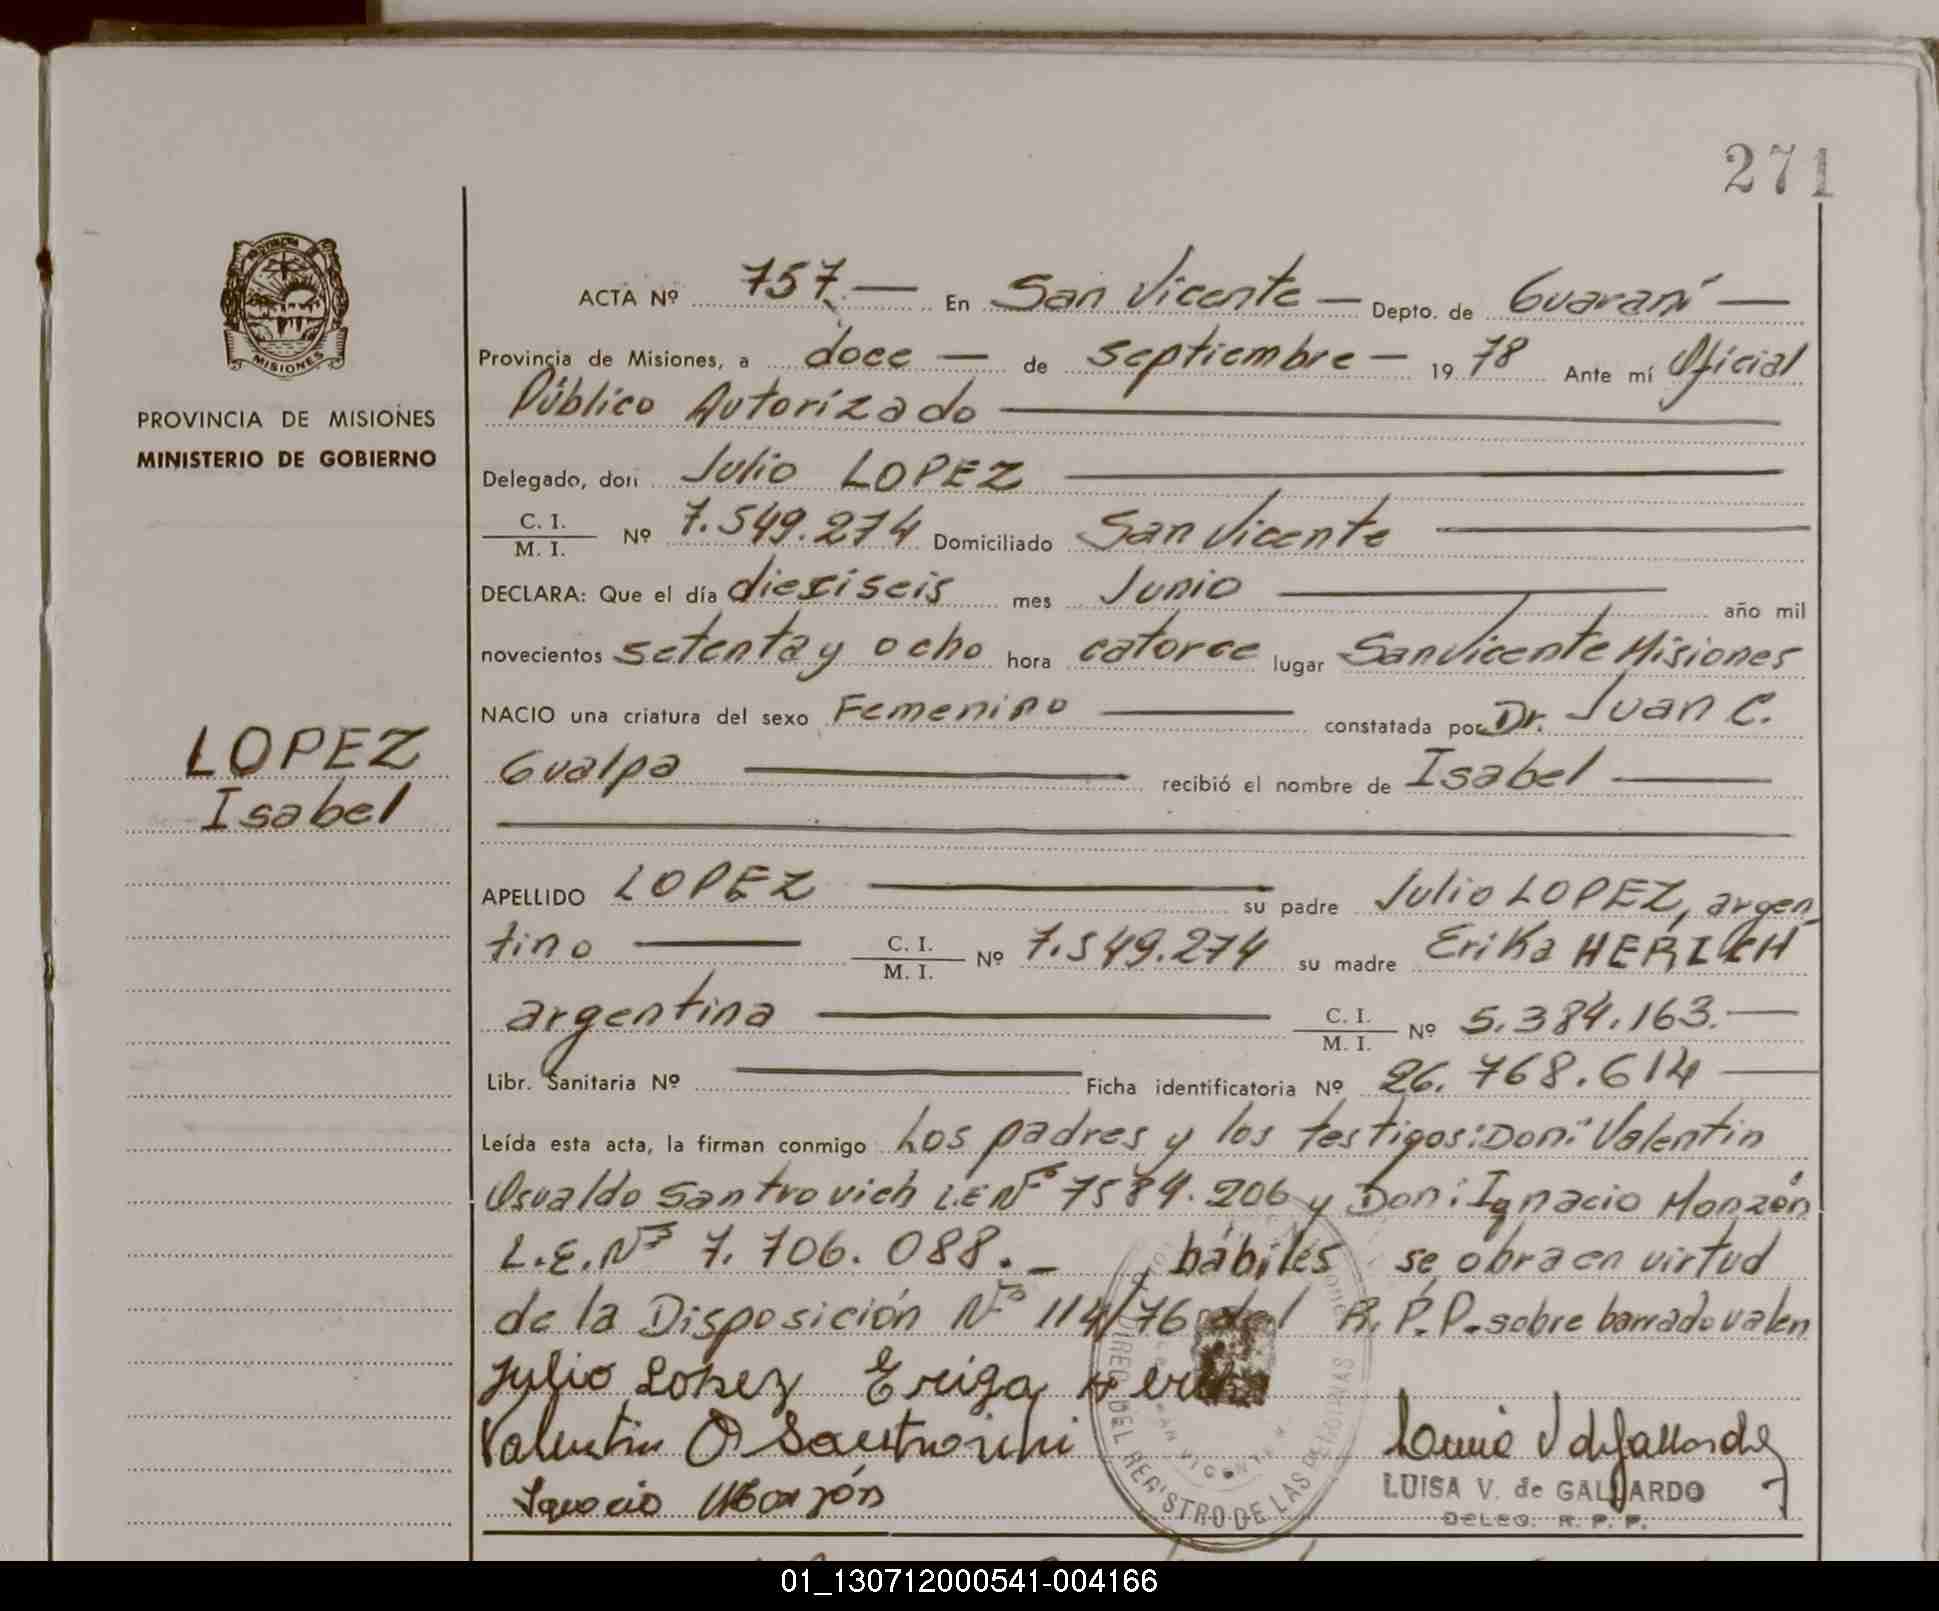 271
ACTA Nº 757.— En San Vicente — Depto. de Guaraní —
Provincia de Misiones, a doce — de septiembre — 19 78 Ante mí Oficial
Público Autorizado
PROVINCIA DE MISIONES
MINISTERIO DE GOBIERNO
Delegado, don Julio LOPEZ
C. I. / M. I. Nº 7.549.274 Domiciliado San Vicente
DECLARA: Que el día dieciseis mes Junio año mil
novecientos setenta y ocho hora catorce lugar San Vicente Misiones
NACIO una criatura del sexo Femenino constatada por Dr. Juan C.
Gualpa recibió el nombre de Isabel
LOPEZ
Isabel
APELLIDO LOPEZ su padre Julio LOPEZ, argen
tino C. I. / M. I. Nº 7.549.274 su madre Erika
argentina C. I. / M. I. Nº 5.384.163.—
Libr. Sanitaria Nº Ficha identificatoria Nº 26.768.614
Leída esta acta, la firman conmigo Los padres y los testigos: Don: Valentin
Osvaldo Santrovich L.E Nº 7584.206 y Don: Ignacio Monzón
L.E. Nº 7.706.088.- hábiles se obra en virtud
de la Disposición Nº 114/76 del R.P.P. sobre barrado valen
Julio Lopez Eriga
Valentin O
Ignacio Monzón
LUISA V. de GALLARDO
DELEG. R. P. P.
DIREC. DEL REGISTRO DE LAS PERSONAS
SAN VICENTE
01_130712000541-004166